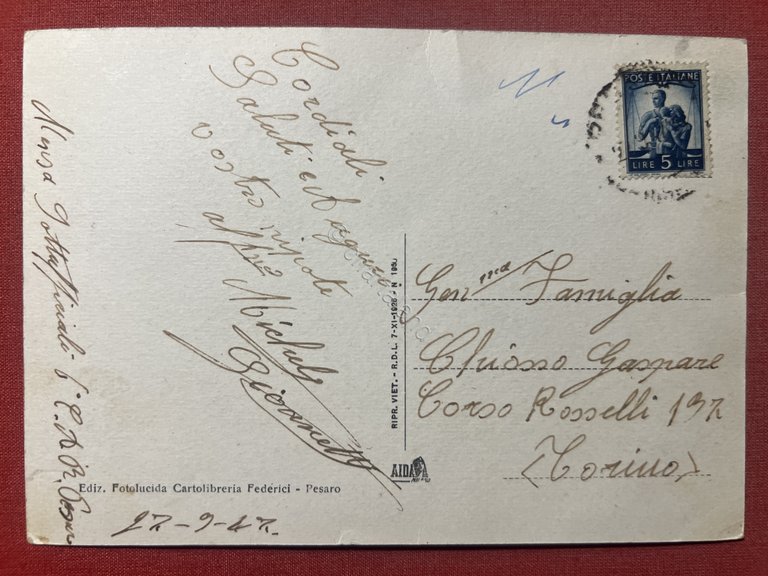 Cordiali
Saluti ed auguri
vostro nipote
aff.mo Michele
Giovanetti
Mensa Sottufficiali 6° C.A.R. Pesaro
27-9-47.
Ediz. Fotolucida Cartolibreria Federici - Pesaro
RIPR. VIET. - R.D.L. 7-XI-1925 - N 1950
AIDA
POSTE ITALIANE
LIRE 5 LIRE
Gen.ma Famiglia
Chiosso Gaspare
Corso Rosselli 137
(Torino)